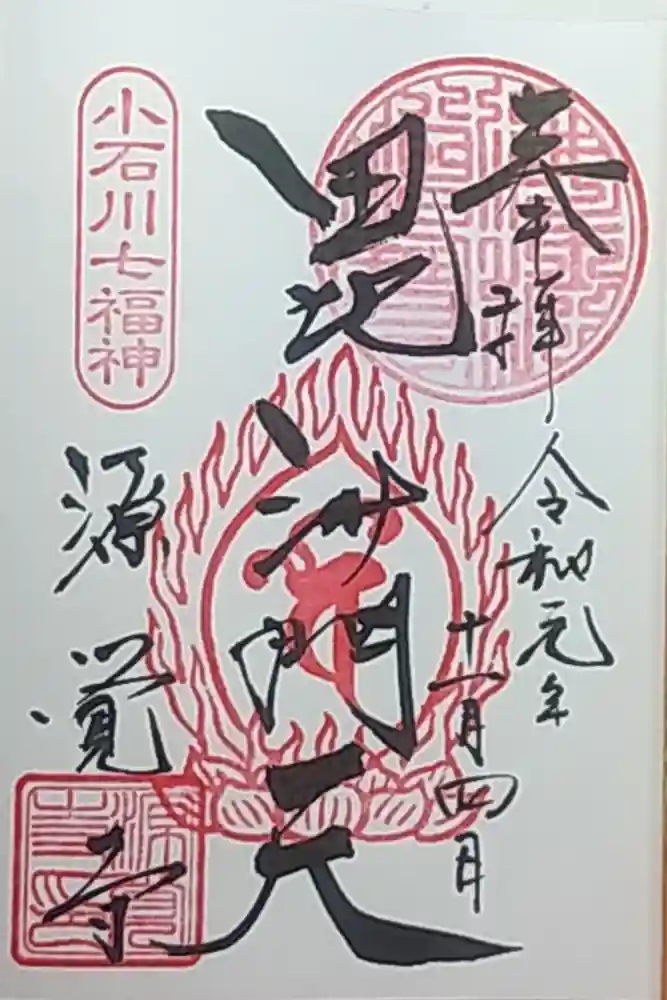 奉拝 令和元年
十一月四日
毘沙門天
小石川七福神
源覚寺